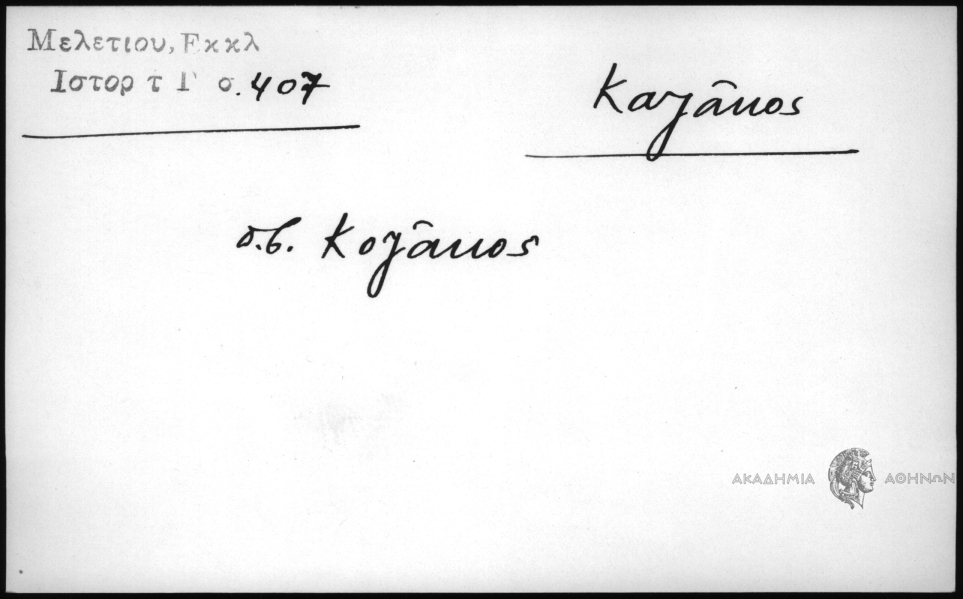 Μελετιου, Εκκλ
Ιστορ τ Γ σ. 407
Καγᾶνος
σ.β. Κογᾶνος
ΑΚΑΔΗΜΙΑ ΑΘΗΝΩΝ